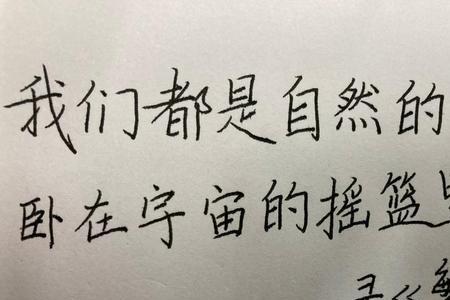 我们都是自然的
卧在宇宙的摇篮